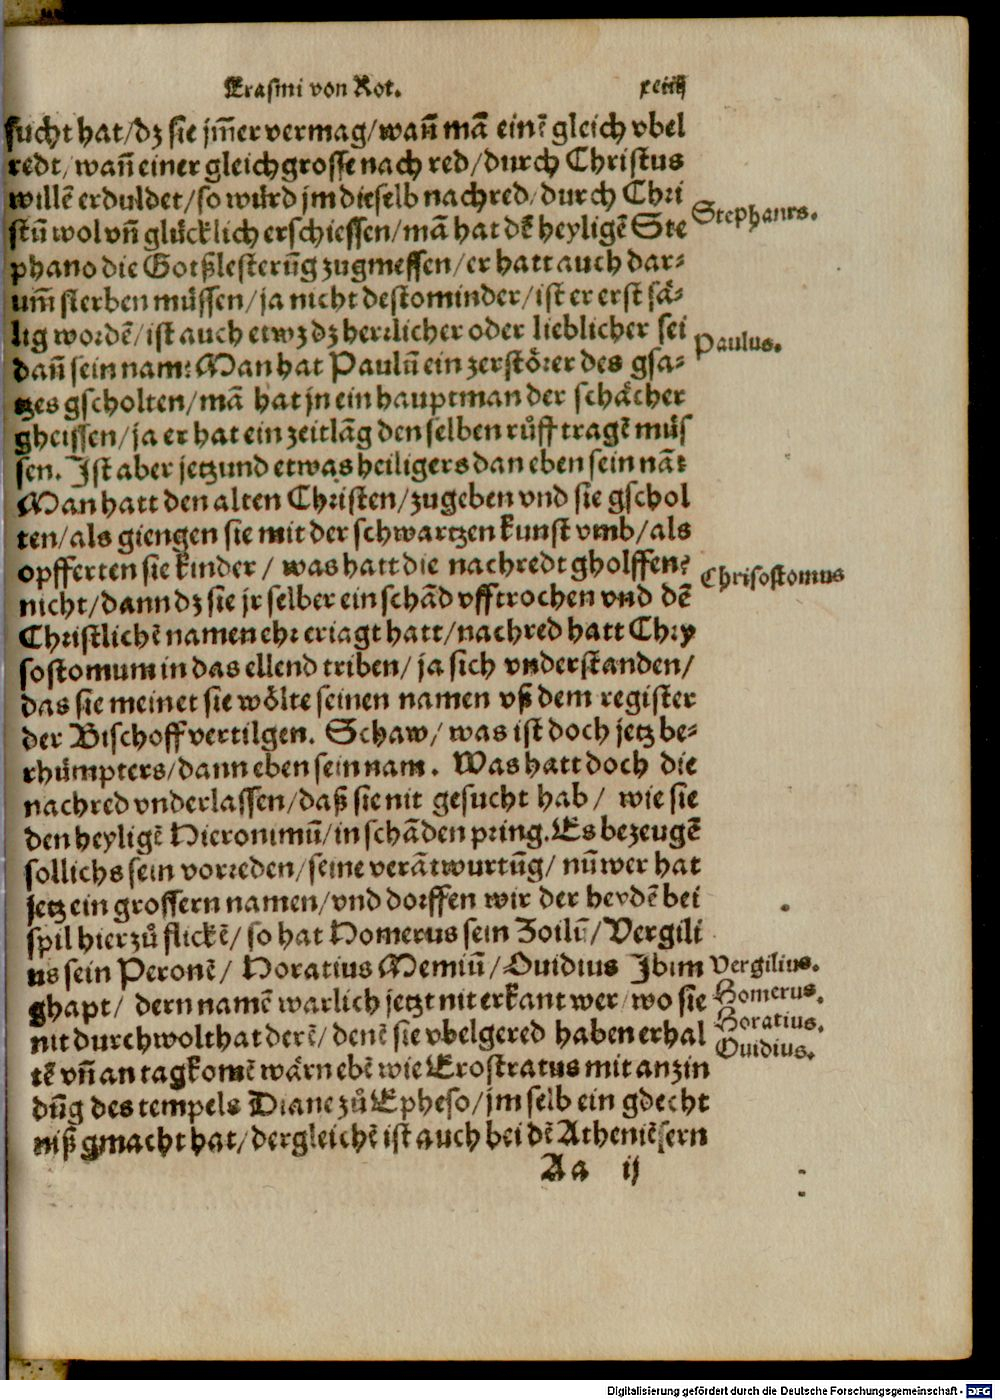 Erasmi von Rot. xciiij
sucht hat/dz sie jm̄er vermag/wañ mā einē gleich vbel
redt/wañ einer gleich grosse nach red/durch Christus
willē erduldet/so würd jm dieselb nachred/durch Chri
stū wol vñ glücklich erschiessen/mā hat dē heyligē Ste
Stephanus.
phano die Gotßlesterūg zugmessen/er hatt auch dar⸗
um̄ sterben müssen/ja nicht destominder/ist er erst sä⸗
lig wordē/ist auch etwz dz herrlicher oder lieblicher sei
Paulus.
dañ sein nam: Man hat Paulū ein zerstörer des gsa⸗
tzes gscholten/mā hat jn ein hauptman der schächer
gheissen/ja er hat ein zeitlāg den selben růff tragē müs
sen. Ist aber jetzund etwas heiligers dan eben sein nā:
Man hatt den alten Christen/zugeben vnd sie gschol
ten/als giengen sie mit der schwartzen kunst vmb/als
opfferten sie kinder/ was hatt die nachredt gholffen?
Chrisostomus
nicht/dann dz sie jr selber ein schād vfftrochen vnd dē
Christlichē namen ehr eriagt hatt/nachred hatt Chry
sostomum in das ellend triben/ ja sich vnderstanden/
das sie meinet sie wölte seinen namen vß dem register
der Bischoff vertilgen. Schaw/ was ist doch jetz be⸗
rhümpters/dann eben sein nam. Was hatt doch die
nachred vnderlassen/daß sie nit gesucht hab/ wie sie
den heyligē Hieronimū/in schāden pring. Es bezeugē
sollichs sein vorreden/seine verātwurtūg/ nū wer hat
jetz ein grossern namen/vnd dorffen wir der heydē bei
spil hierzů flickē/so hat Homerus sein Zoilū/Vergili
us sein Peronē/ Horatius Memiū/Ouidius Ibim
Vergilius.
ghapt/ dern namē warlich jetzt nit erkant wer/wo sie
Homerus.
nit durch wolthat derē/denē sie vbelgered haben erhal
Horatius.
Ouidius.
tē vñ an tag komē wärn ebē wie Erostratus mit anzin
dūg des tempels Diane zů Epheso/jm selb ein gdecht
niß gmacht hat/dergleichē ist auch bei dē Atheniēsern
Aa ij
Digitalisierung gefördert durch die Deutsche Forschungsgemeinschaft - DFG